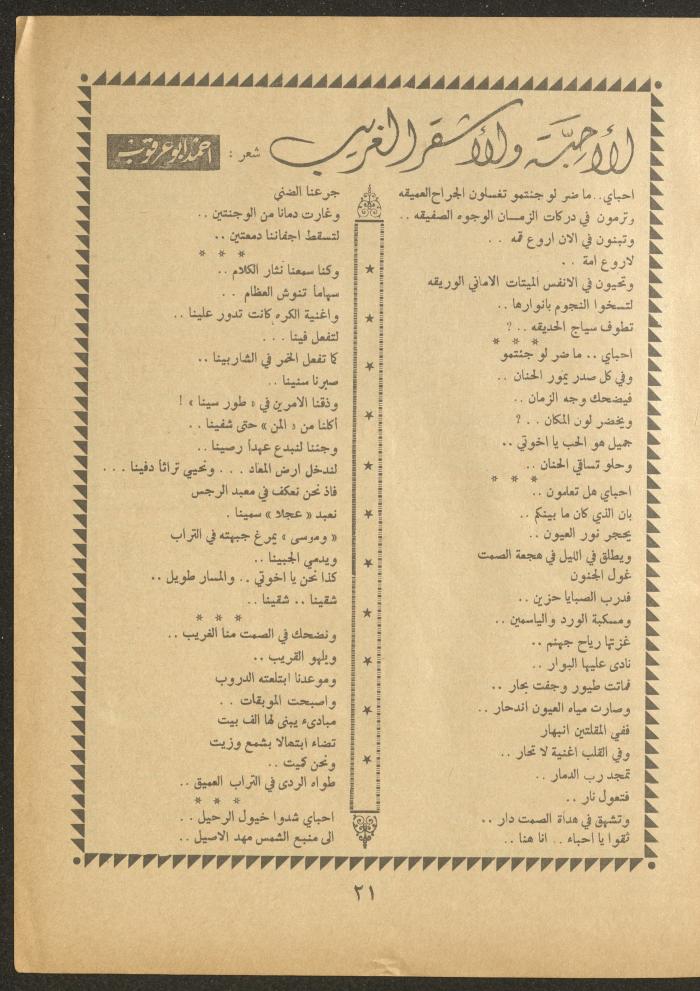 الأحبة والأشقر الغريب
شعر : احمد ابو عرقوب
احباي.. ما ضر لو جئتمو تغسلون الجراح العميقه
وترمون في دركات الزمان الوجوه الصفيقه ..
وتبنون في الان اروع قمه . .
لاروع امة . .
وتحيون في الانفس الميتات الاماني الوريقه
لتسخوا النجوم بانوارها ..
تطوف سياج الحديقه .. ؟
* * *
احباي .. ما ضر لو جئتمو
وفي كل صدر يمور الحنان ..
فيضحك وجه الزمان ..
ويخضر لون المكان . . ؟
جميل هو الحب يا اخوتي ..
وحلو تساقي الحنان ..
* * *
احباي هل تعلمون ..
بان الذي كان ما بينكم ..
يحجر نور العيون ..
ويطلق في الليل في هجعة الصمت
غول الجنون
فدرب الصبايا حزين ..
ومسكبة الورد والياسمين ..
غزتها رياح جهنم ..
نادى عليها البوار ..
فماتت طيور وجفت بحار ..
وصارت مياه العيون اندحار ..
ففي المقلتين انبهار
وفي القلب اغنية لا تحار ..
تمجد رب الدمار ..
فتعول نار ..
وتشهق في هدأة الصمت دار ..
ثقوا يا احباء .. انا هنا ..
جرعنا الضنى
وغارت دمانا من الوجنتين ..
لتسقط اجفاننا دمعتين ..
* * *
وكنا سمعنا نثار الكلام ..
سهاماً تنوش العظام . .
واغنية الكره كانت تدور علينا ..
لتفعل فينا . . .
كما تفعل الخمر في الشاربينا ..
صبرنا سنينا ..
وذقنا الامرين في « طور سينا » !
أكلنا من « المن » حتى شفينا . .
وجئنا لنبدع عهداً رصينا ..
لندخل ارض المعاد . . . ونحيي تراثاً دفينا . . .
فاذ نحن نعكف في معبد الرجس
نعبد « عجلا » سمينا .
« وموسى » يمرغ جبهته في التراب
ويدمي الجبينا ..
كذا نحن يا اخوتي .. والمسار طويل ..
شقينا .. شقينا ..
* * *
ونضحك في الصمت منا الغريب ..
ويلهو القريب ..
وموعدنا ابتلعته الدروب
واصبحت الموبقات . .
مبادىء يبنى لها الف بيت
تضاء ابتهالا بشمع وزيت
ونحن كميت ..
طواه الردى في التراب العميق ..
* * *
احباي شدوا خيول الرحيل . .
الى منبع الشمس مهد الاصيل ..
٢١